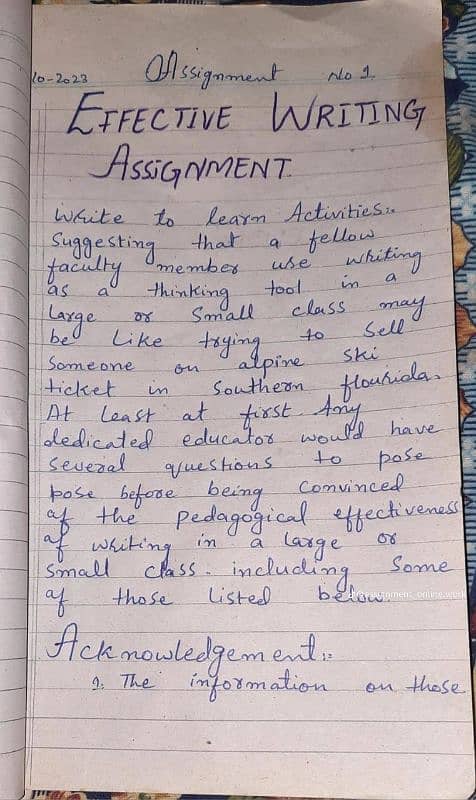 10-2023 Assignment No 1.
EFFECTIVE WRITING
ASSIGNMENT.
Write to learn Activities:-
Suggesting that a fellow
faculty member use writing
as a thinking tool in a
large or small class may
be like trying to sell
someone on alpine ski
ticket in Southern flourida.
At least at first. Any
dedicated educator would have
several questions to pose
pose before being convinced
of the pedagogical effectiveness
of writing in a large or
small class. including some
of those listed below.
Acknowledgement:-
1. The information on those